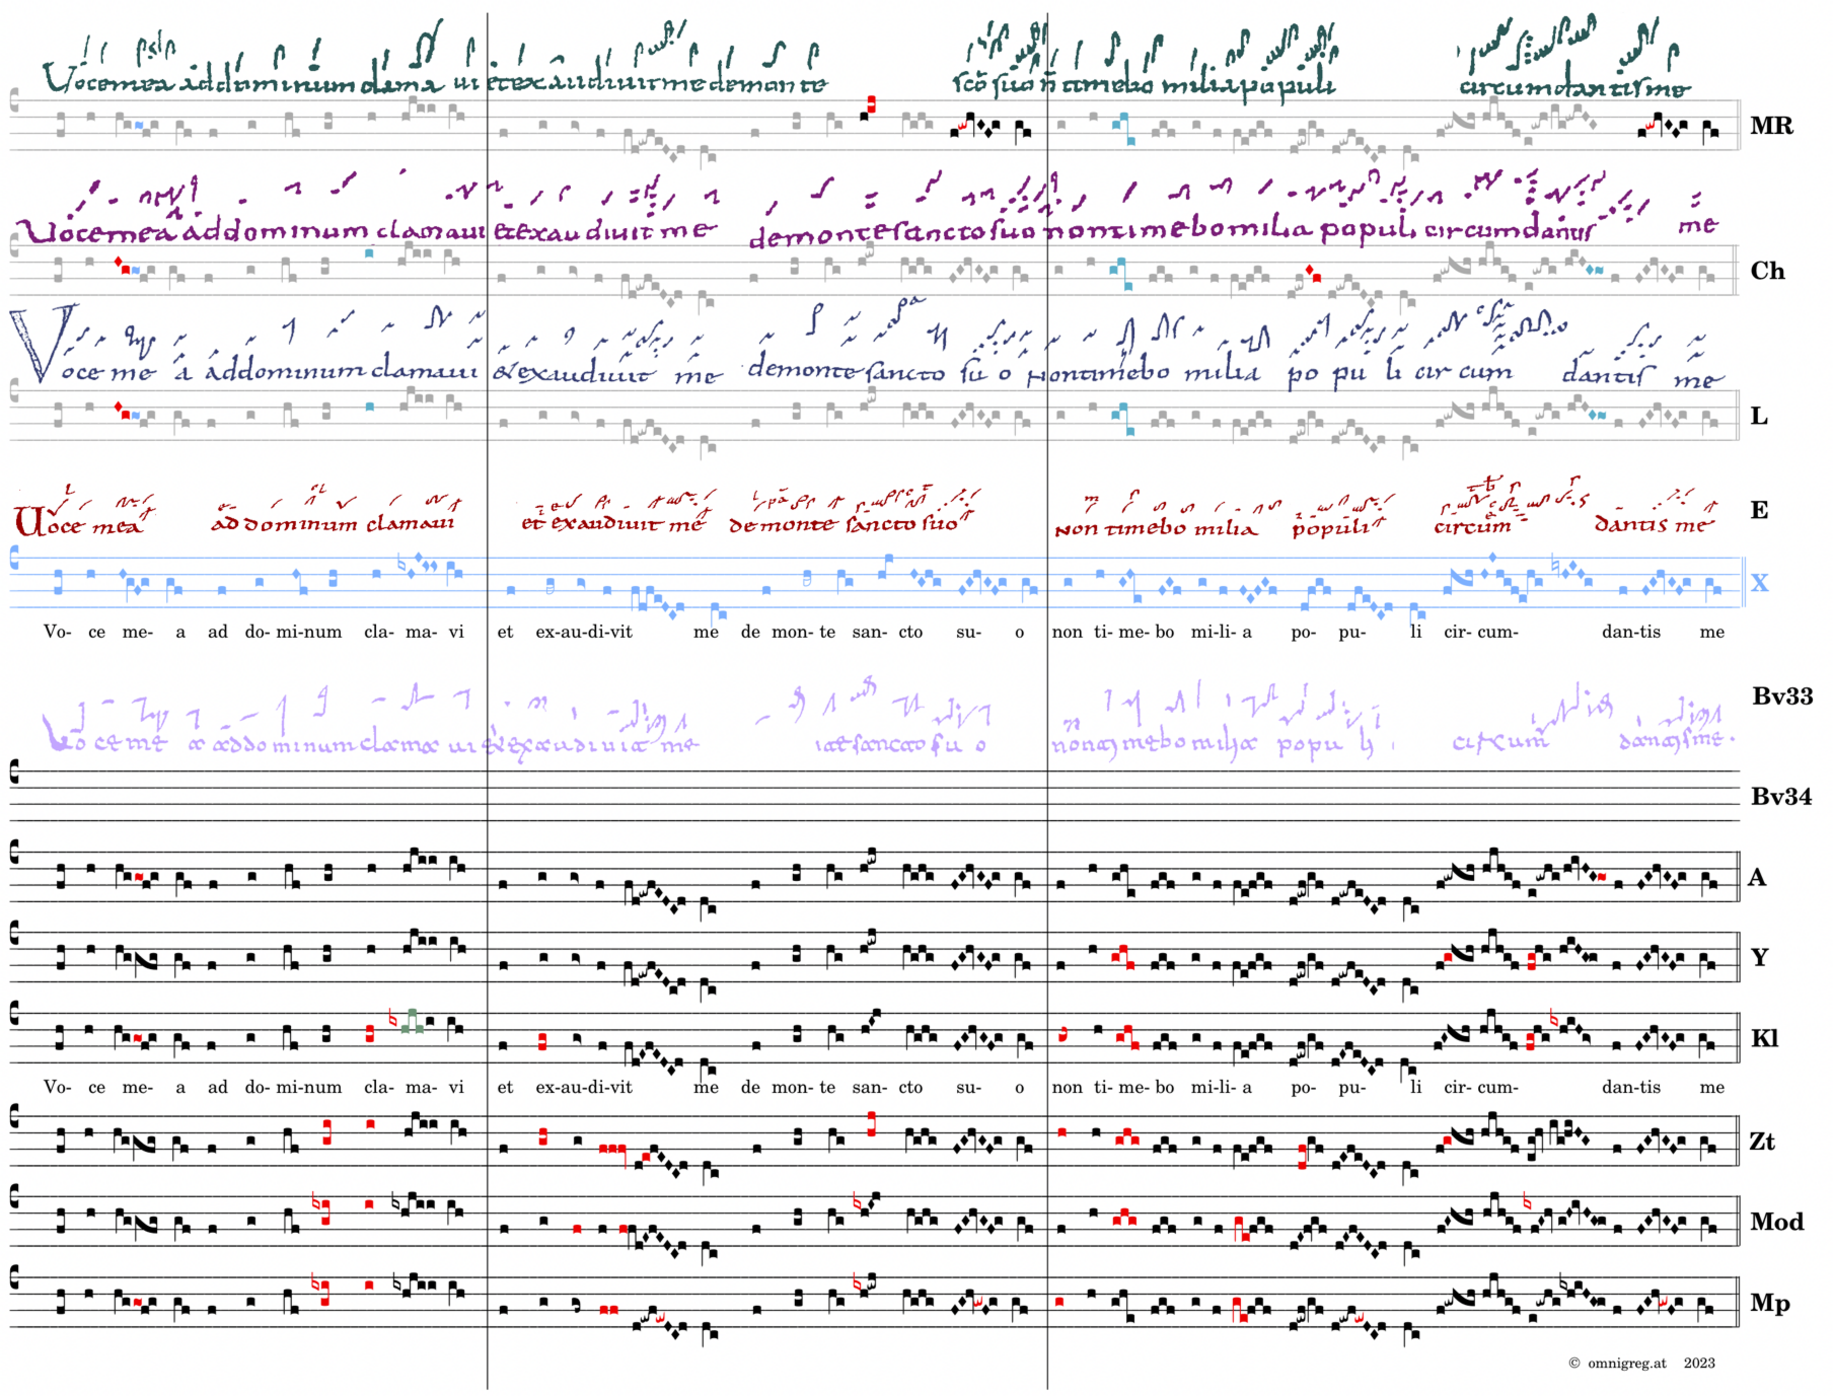 Vocemea addominum clamaui etexaudiuitme demonte scō suo n̄ timebo miliapopuli circumdantisme
MR
Uocemea addominum clamaui etexaudiuit me demontesanctosuo nontimebomilia populi circumdantis me
Ch
Voce me a addominum clamaui &exaudiuit me demontesancto su o Nontimebo milia po pu li cir cum dantis me
L
Uoce mea ad dominum clamaui et exaudiuit me demonte sancto suo Non timebo milia populi circum dantis me
E
X
Vo- ce me- a ad do- mi-num cla- ma- vi et ex-au-di-vit me de mon- te san- cto su- o non ti- me- bo mi-li- a po- pu- li cir- cum- dan-tis me
Bv33
Bv34
A
Y
Kl
Vo- ce me- a ad do- mi-num cla- ma- vi et ex-au-di-vit me de mon- te san- cto su- o non ti- me- bo mi-li- a po- pu- li cir- cum- dan-tis me
Zt
Mod
Mp
© omnigreg.at 2023